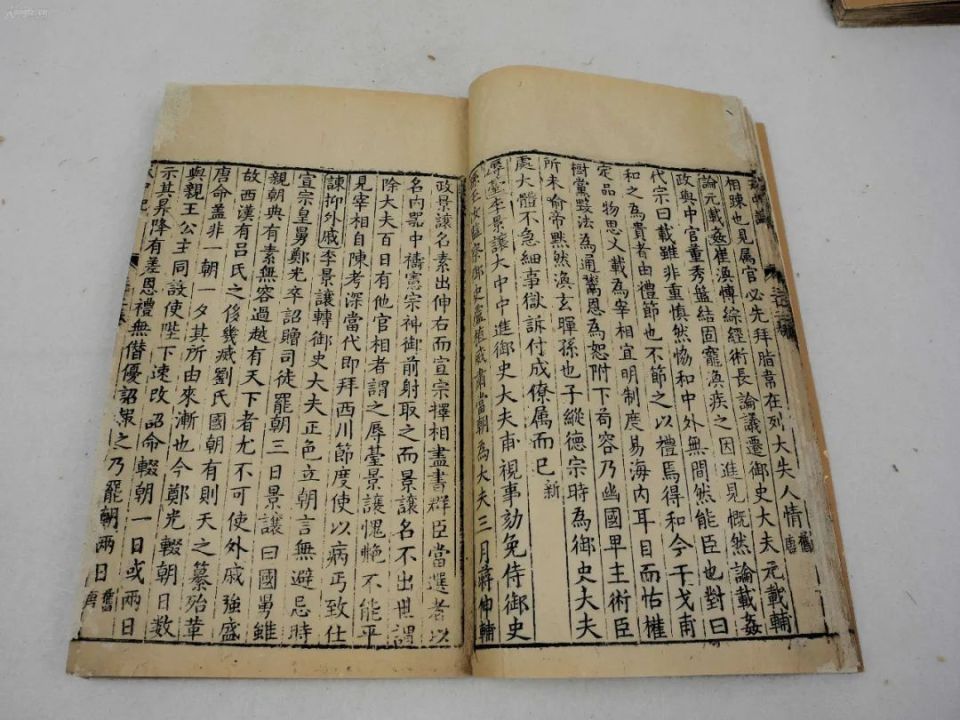 相踈也見属官必先拜脂韋在列大失人情舊唐
論元載姦崔渙博綜經術長論議遷御史大夫元載輔
政與中官董秀盤結固寵渙疾之因進見慨然論載姦
代宗曰載雖非重慎然恊和中外無間然能臣也對曰
和之為貴者由禮節也不節之以禮焉得和今干戈甫
定品物思乂載為宰相宜明制度易海内耳目而怙權
樹黨毀法為通鬻恩為恕附下苟容乃幽國卑主術臣
所未喻帝黙然渙玄暐孫也子縱德宗時為御史大夫
處大體不急細事獄訴付成僚属而已新
辱臺李景讓大中中進御史大夫甫視事劾免侍御史
孫玉汝監察御史盧栯威肅當朝為大夫三月蔣伸輔
政景讓名素出伸右而宣宗擇相盡書群臣當選者以
名内器中禱憲宗神御前射取之而景讓名不出世謂
除大夫百日有他官相者謂之辱臺景讓愧艴不能平
見宰相自陳考深當代即拜西川節度使以病丐致仕
諫抑外戚李景讓轉御史大夫正色立朝言無避忌時
宣宗皇舅鄭光卒詔贈司徒罷朝三日景讓曰國舅雖
親朝典有素無容過越有天下者尤不可使外戚強盛
故西漢有吕氏之後幾滅劉氏國朝有則天之簒殆革
唐命盖非一朝一夕其所由來漸也今鄭光輟朝日數
與親王公主同設使陛下速改詔命輟朝一日或兩日
示其昇降有差恩禮無僣優詔報之乃罷朝兩日舊唐